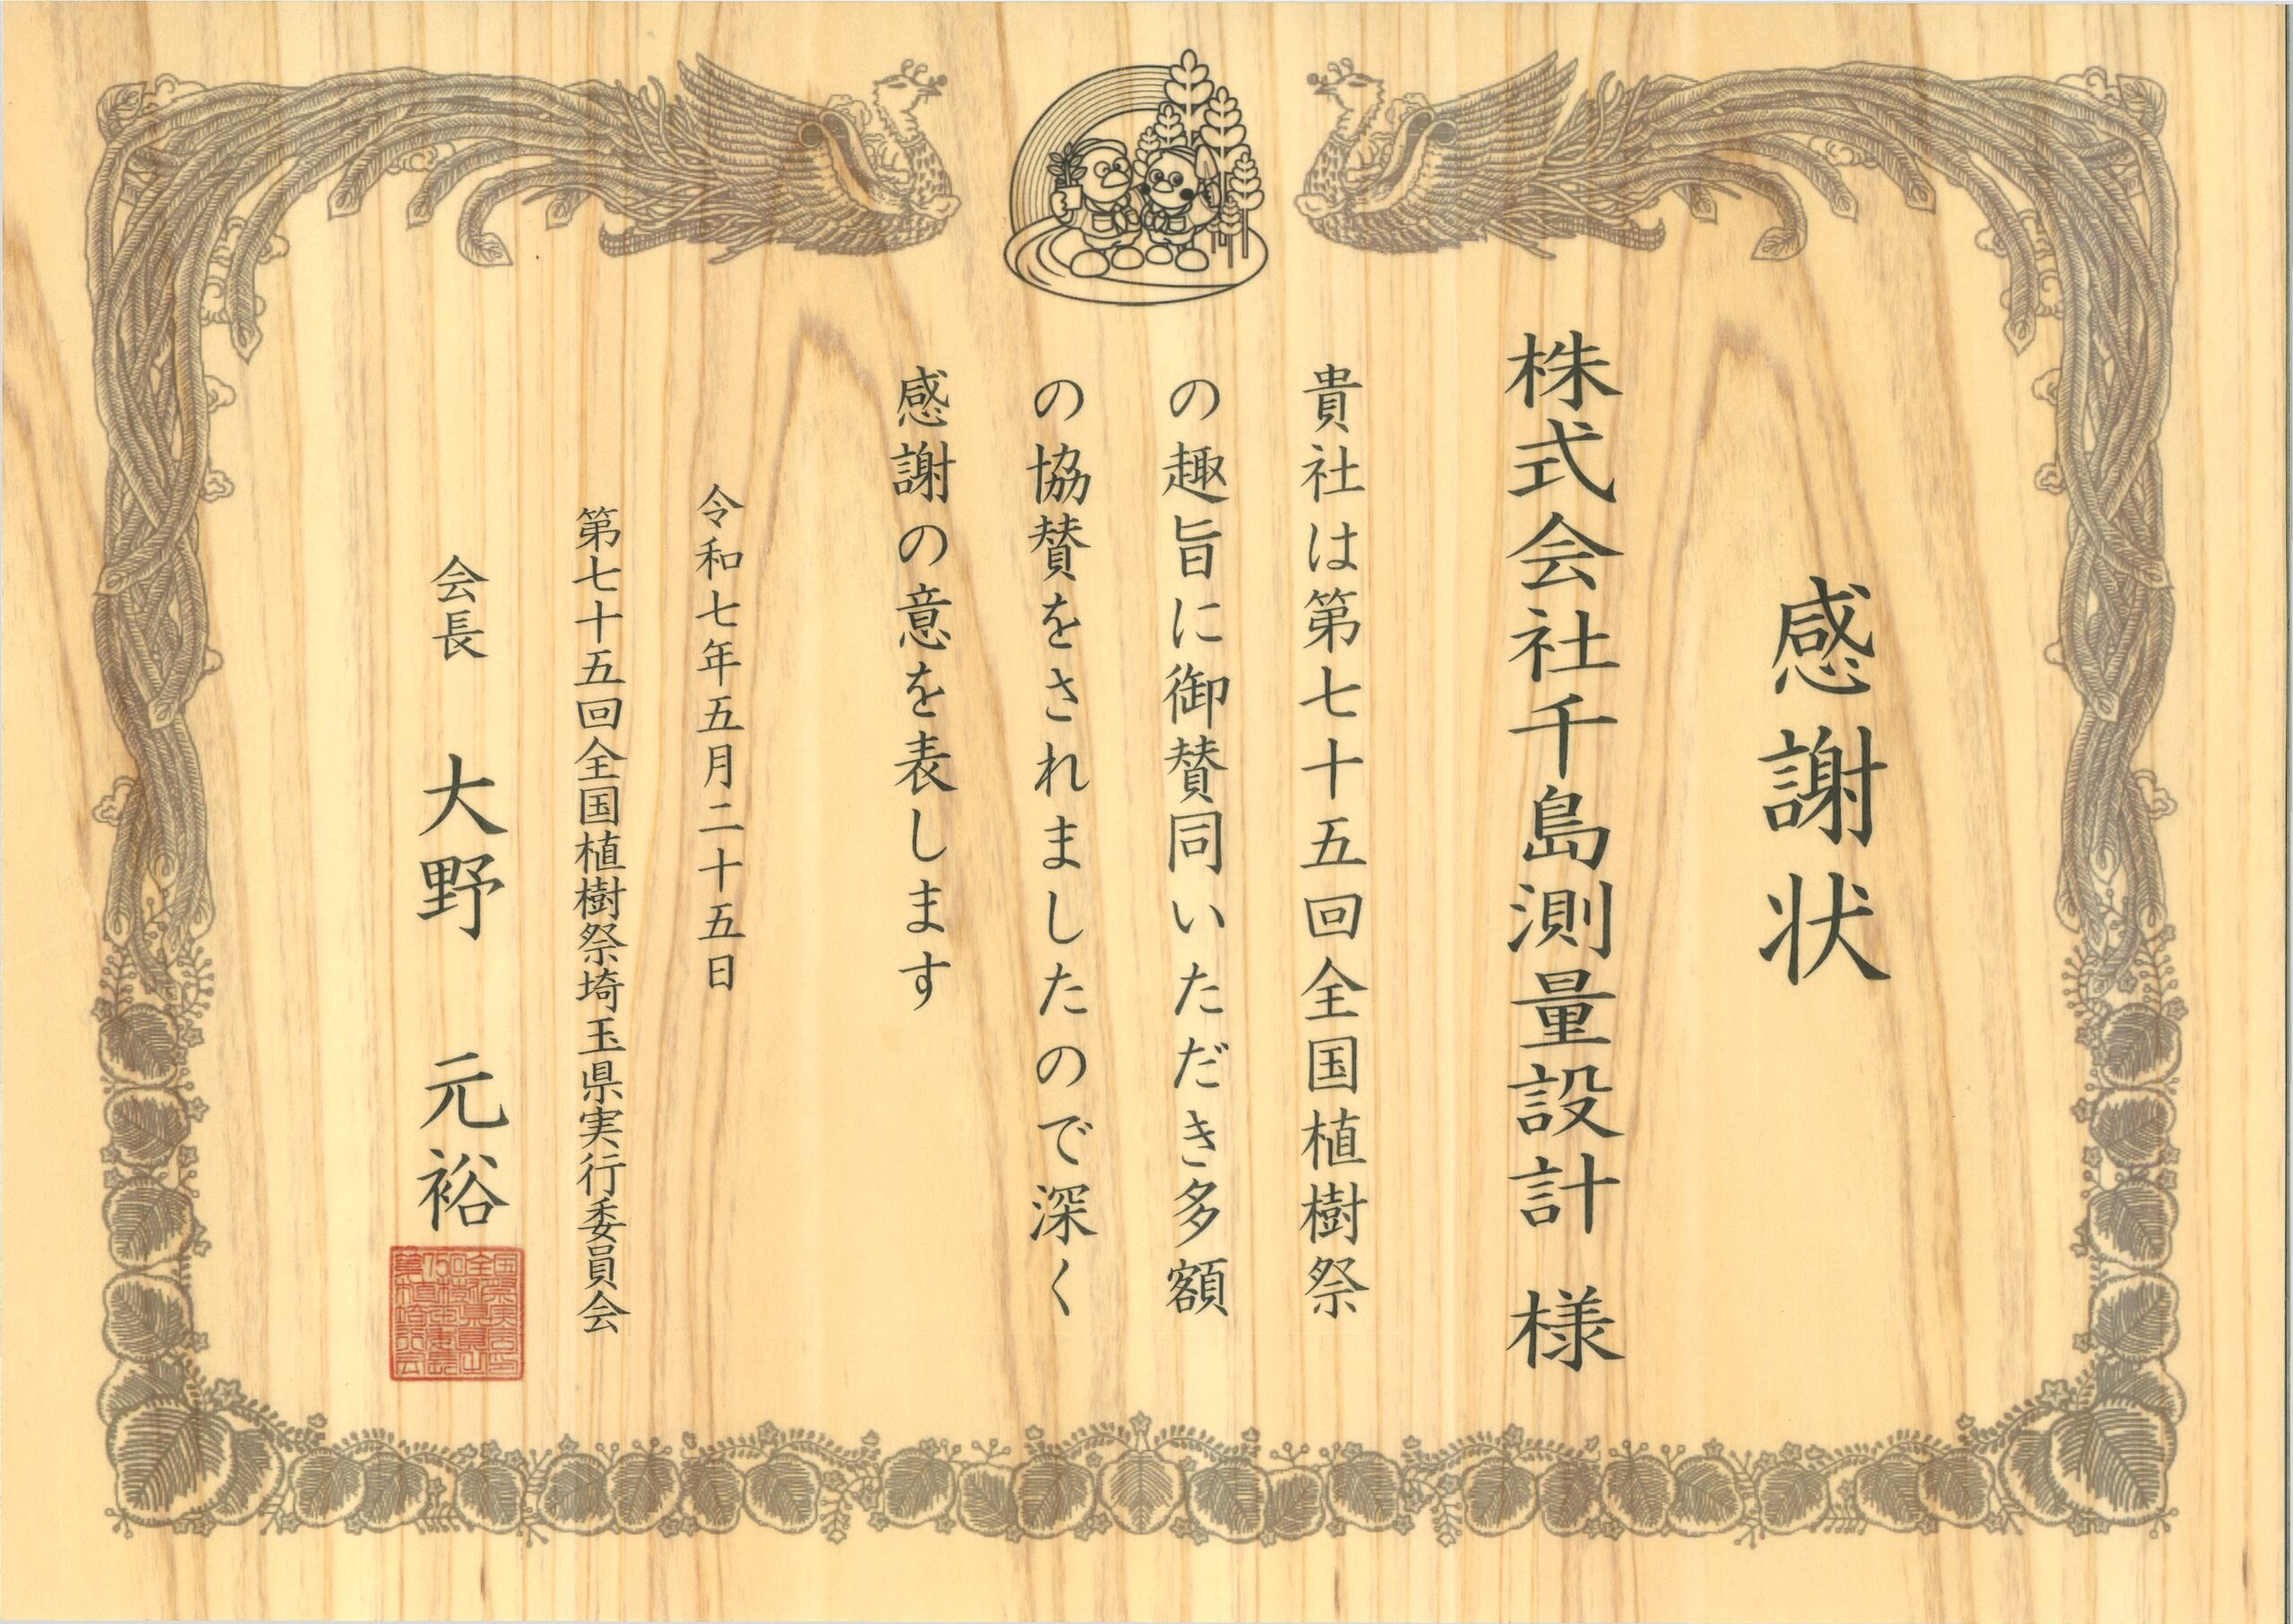 感謝状
株式会社千島測量設計 様
貴社は第七十五回全国植樹祭
の趣旨に御賛同いただき多額
の協賛をされましたので深く
感謝の意を表します
令和七年五月二十五日
第七十五回全国植樹祭埼玉県実行委員会
会長 大野 元裕